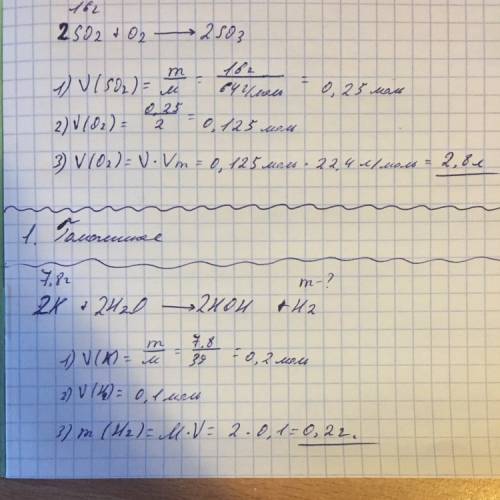 16г
2SO2 + O2 → 2SO3
1) V(SO2) = m/M = 16г/64г/моль = 0,25 моль
2) V(O2) = 0,25/2 = 0,125 моль
3) V(O2) = V · Vm = 0,125 моль · 22,4 л/моль = 2,8 л
1.
7,8г m-?
2K + 2H2O → 2KOH + H2
1) V(K) = m/M = 7,8/39 = 0,2 моль
2) V(H2) = 0,1 моль
3) m(H2) = M · V = 2 · 0,1 = 0,2 г.